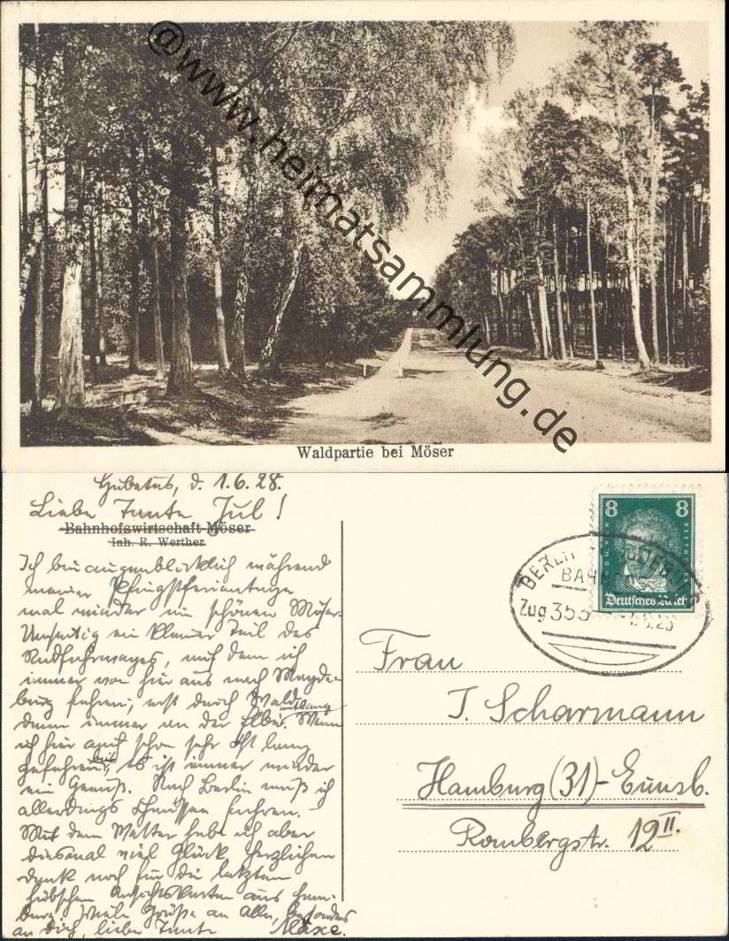 @www.heimatsammlung.de
Waldpartie bei Möser
d. 1.6.28.
Liebe Tante Jul!
Bahnhofswirtschaft Möser
Inh. R. Werther
Ich bin augenblicklich während
meiner Pfingstferientage
mal wieder im schönen Möser.
Umseitig ein kleiner Teil des
Radfahrweges, auf dem ich
immer von hier aus nach Magde-
burg fahre; erst durch Wald,
dann immer an der Elbe entlang. Wenn
ich hier auch schon sehr oft lang
gefahren bin, es ist immer wieder
ein Genuß. Nach Berlin muß ich
allerdings fahren.
Mit dem Wetter habe ich aber
diesmal viel Glück. Herzlichen
Dank noch für die letzten
hübschen Ansichtskarten aus Ham-
burg. Viele Grüße an Alle, besonders
an Dich, liebe Tante
8 8
Deutsches Reich
BERLIN
BAH
Zug 353
Frau
J. Scharmann
Hamburg (31)-Eimsb.
Rombergstr. 12 II.